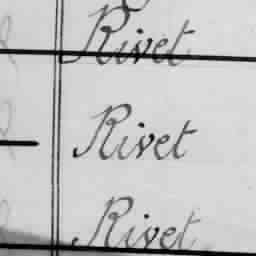 Rivet
Rivet
Rivet